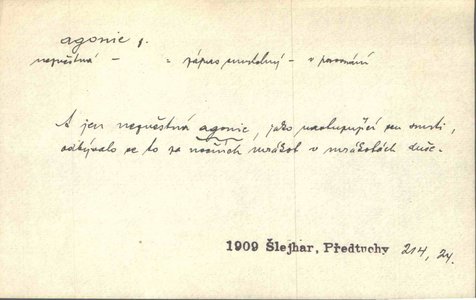 agonie f.
nezvěstná – = zápas smrtelný – v porovnání
A jen nezvěstná agonie, jako nastupující sen smrti,
odbývalo se to za nočních mrákot v mrákotách duše.
1909 Šlejhar, Předtuchy 214, 24.